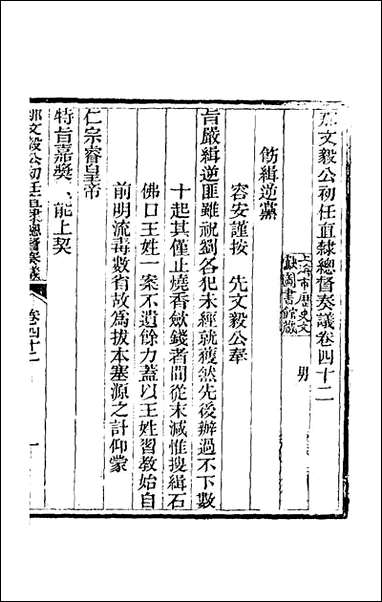 那文毅公初任直隸總督奏議卷四十二
上海市歷史文獻圖書館藏
男
飭緝逆黨
容安謹按　先文毅公奉
旨嚴緝逆匪雖祝劉各犯未經就獲然先後辦過不下數
十起其僅止燒香斂錢者間從末減惟搜緝石
佛口王姓一案不遺餘力蓋以王姓習教始自
前明流毒數省故爲拔本塞源之計仰蒙
仁宗睿皇帝
特旨嘉獎
能上契
那文毅公初任直隸總督奏議
卷四十二
一